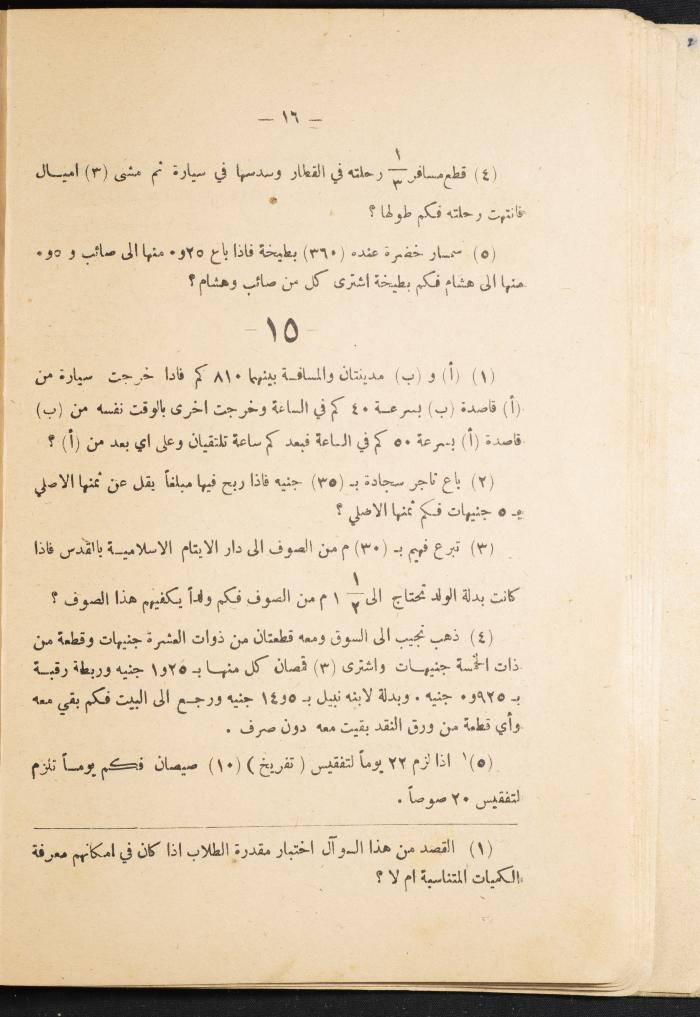 — ١٦ —
(٤) قطع مسافر ١/٣ رحلته في القطار وسدسها في سيارة ثم مشى (٣) اميال
فانتهت رحلته فكم طولها ؟
(٥) سمسار خضرة عنده (٣٦٠) بطيخة فاذا باع ٢٥و٠ منها الى صائب و ٥و٠
منها الى هشام فكم بطيخة اشترى كل من صائب وهشام ؟
— ١٥ —
(١) (أ) و (ب) مدينتان والمسافة بينهما ٨١٠ كم فاذا خرجت سيارة من
(أ) قاصدة (ب) بسرعة ٤٠ كم في الساعة وخرجت اخرى بالوقت نفسه من (ب)
قاصدة (أ) بسرعة ٥٠ كم في الساعة فبعد كم ساعة تلتقيان وعلى اي بعد من (أ) ؟
(٢) باع تاجر سجادة بـ (٣٥) جنيه فاذا ربح فيها مبلغاً يقل عن ثمنها الاصلي
بـ ٥ جنيهات فكم ثمنها الاصلي ؟
(٣) تبرع فهيم بـ (٣٠) م من الصوف الى دار الايتام الاسلامية بالقدس فاذا
كانت بدلة الولد تحتاج الى ١/٢ ١ م من الصوف فكم ولداً يكفيهم هذا الصوف ؟
(٤) ذهب نجيب الى السوق ومعه قطعتان من ذوات العشرة جنيهات وقطعة من
ذات الخمسة جنيهات واشترى (٣) قمصان كل منها بـ ٢٥و١ جنيه وربطة رقبة
بـ ٩٢٥و٠ جنيه . وبدلة لابنه نبيل بـ ٥و١٤ جنيه ورجع الى البيت فكم بقي معه
وأي قطعة من ورق النقد بقيت معه دون صرف .
(٥)١ اذا لزم ٢٢ يوماً لتفقيس ( تفريخ ) (١٠) صيصان فكم يومساً تلزم
لتفقيس ٢٠ صوصاً .
(١) القصد من هذا السوآل اختبار مقدرة الطلاب اذا كان في امكانهم معرفة
الكميات المتناسبة ام لا ؟